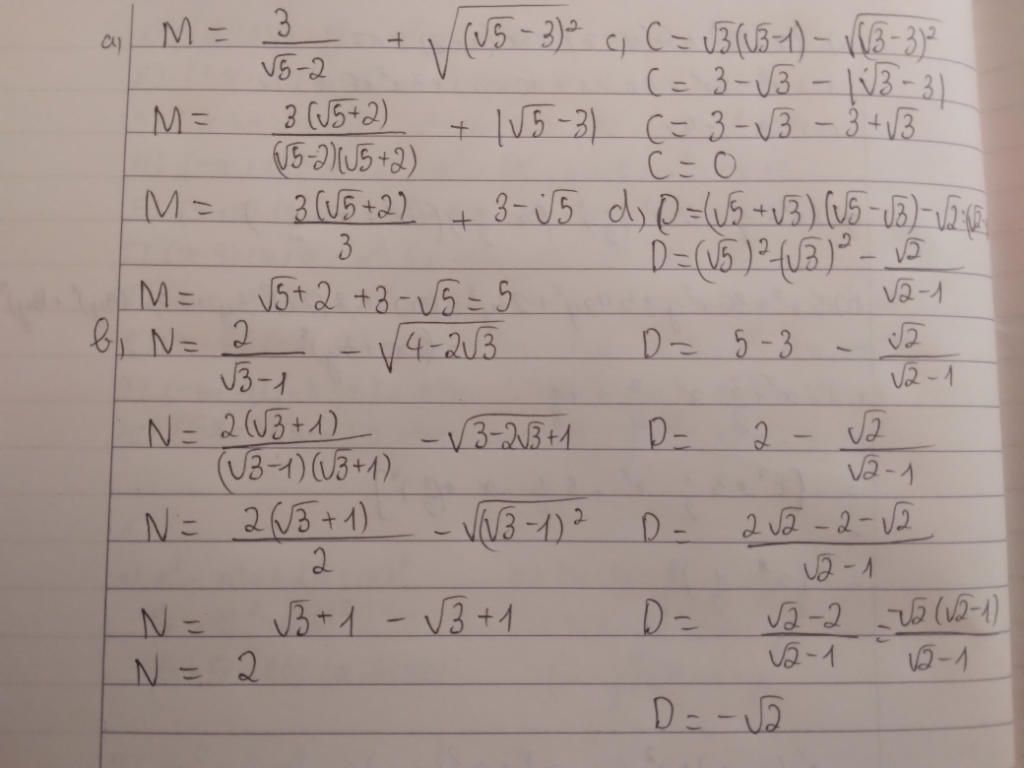 a, M = 3/(√5-2) + √((√5-3)²)
M = 3(√5+2)/((√5-2)(√5+2)) + |√5-3|
M = 3(√5+2)/3 + 3-√5
M = √5+2 +3-√5 = 5
b, N = 2/(√3-1) - √(4-2√3)
N = 2(√3+1)/((√3-1)(√3+1)) - √(3-2√3+1)
N = 2(√3+1)/2 - √((√3-1)²)
N = √3+1 - √3+1
N = 2
c, C = √3(√3-1) - √((√3-3)²)
C = 3-√3 - |√3-3|
C = 3-√3 - 3+√3
C = 0
d, D = (√5+√3)(√5-√3)-√2:(√2-
D = (√5)²-(√3)² - √2/(√2-1)
D = 5-3 - √2/(√2-1)
D = 2 - √2/(√2-1)
D = (2√2-2-√2)/(√2-1)
D = (√2-2)/(√2-1) = -√2(√2-1)/(√2-1)
D = -√2